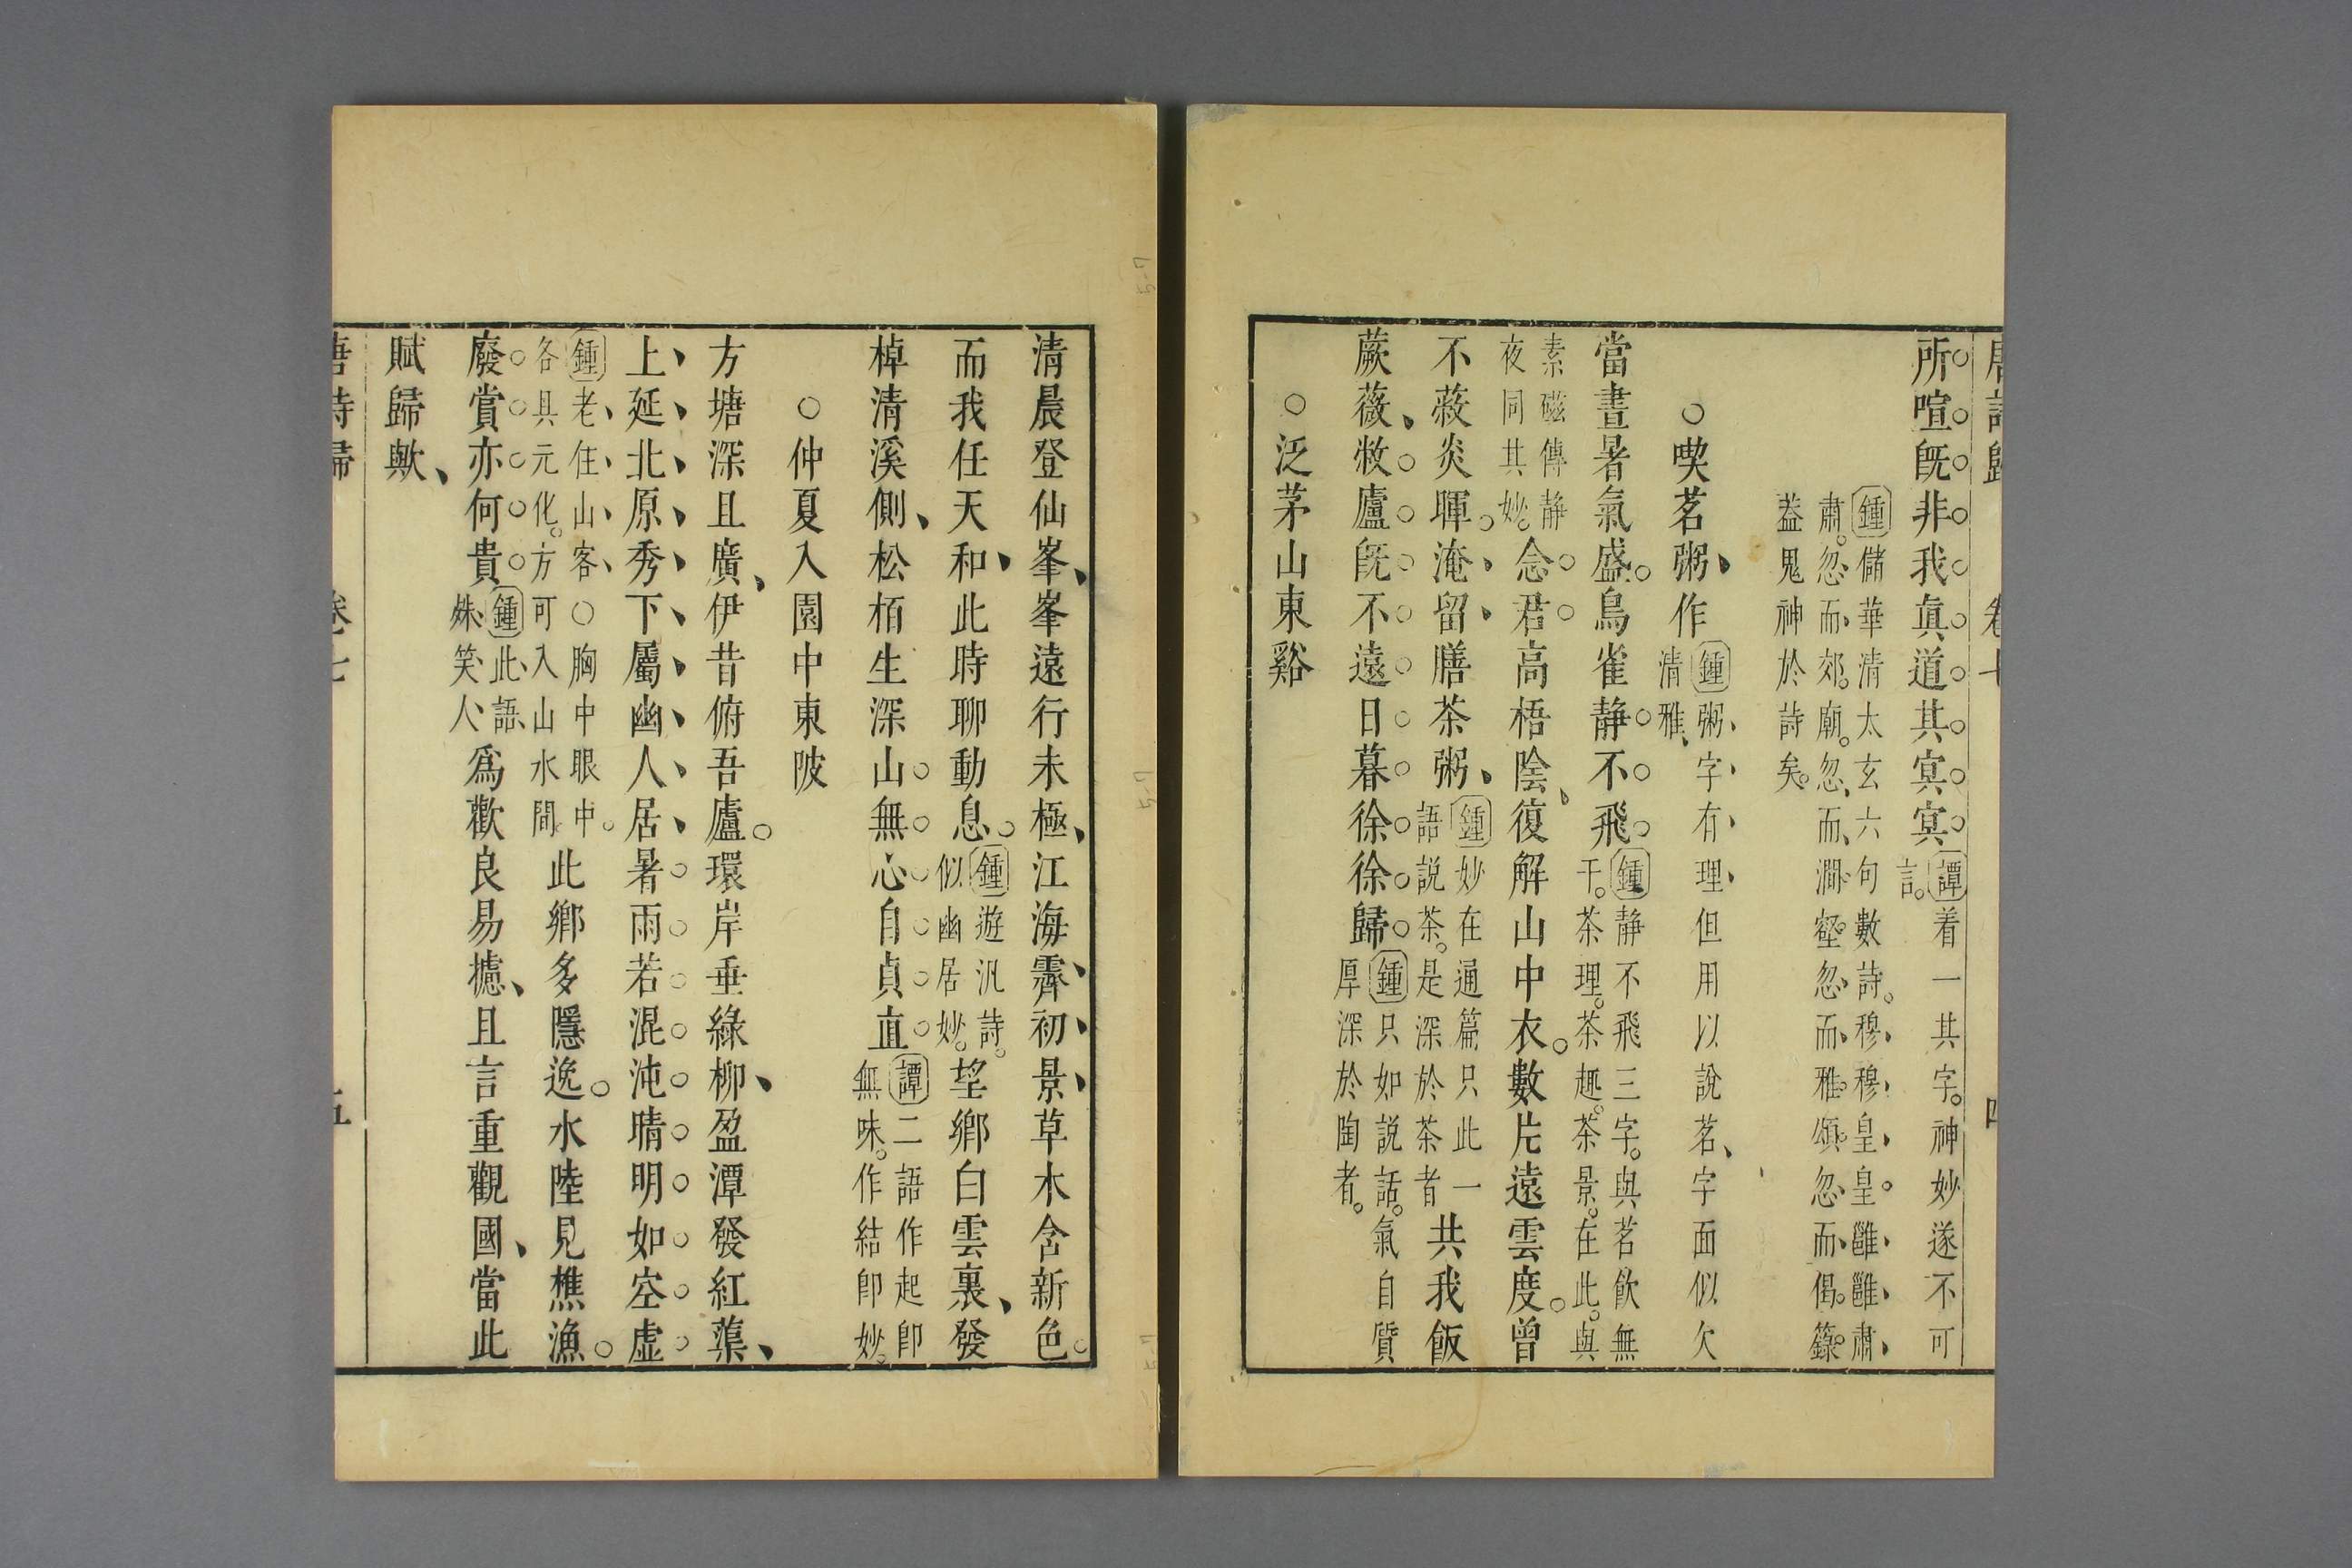 唐詩歸 卷七 四
所喧旣非我真道其㝠㝠譚着一其字神妙遂不可言
鍾儲華清太玄六句數詩穆穆皇皇雝雝肅肅忽而郊廟忽而澗壑忽而雅頌忽而偈籙
葢鬼神於詩矣
○喫茗粥作鍾粥字有理但用以說茗字面似欠清雅
當晝暑氣盛鳥雀静不飛鍾静不飛三字與茗飲無干茶理茶趣茶景在此與
素磁傳静夜同其妙念君高梧陰復解山中衣數片遠雲度曾
不蔽炎暉淹留膳茶粥鍾妙在通篇只此一語說茶是深於茶者共我飯
蕨薇敝廬旣不遠日暮徐徐歸鍾只如說話氣自質厚深於陶者
○泛茅山東谿
清晨登仙峯峯遠行未極江海霽初景草木含新色
而我任天和此時聊動息鍾遊汎詩似幽居妙望鄉白雲裏發
棹清溪側松栢生深山無心自貞直譚二語作起卽無味作結卽妙
○仲夏入園中東陂
方塘深且廣伊昔俯吾廬環岸垂綠柳盈潭發紅蕖
上延北原秀下屬幽人居暑雨若混沌晴明如空虛
鍾老住山客○胸中眼中各具元化方可入山水間此鄉多隱逸水陸見樵漁
廢賞亦何貴鍾此語姝笑人爲歡良易攄且言重觀國當此
賦歸歟
唐詩歸 卷七 五